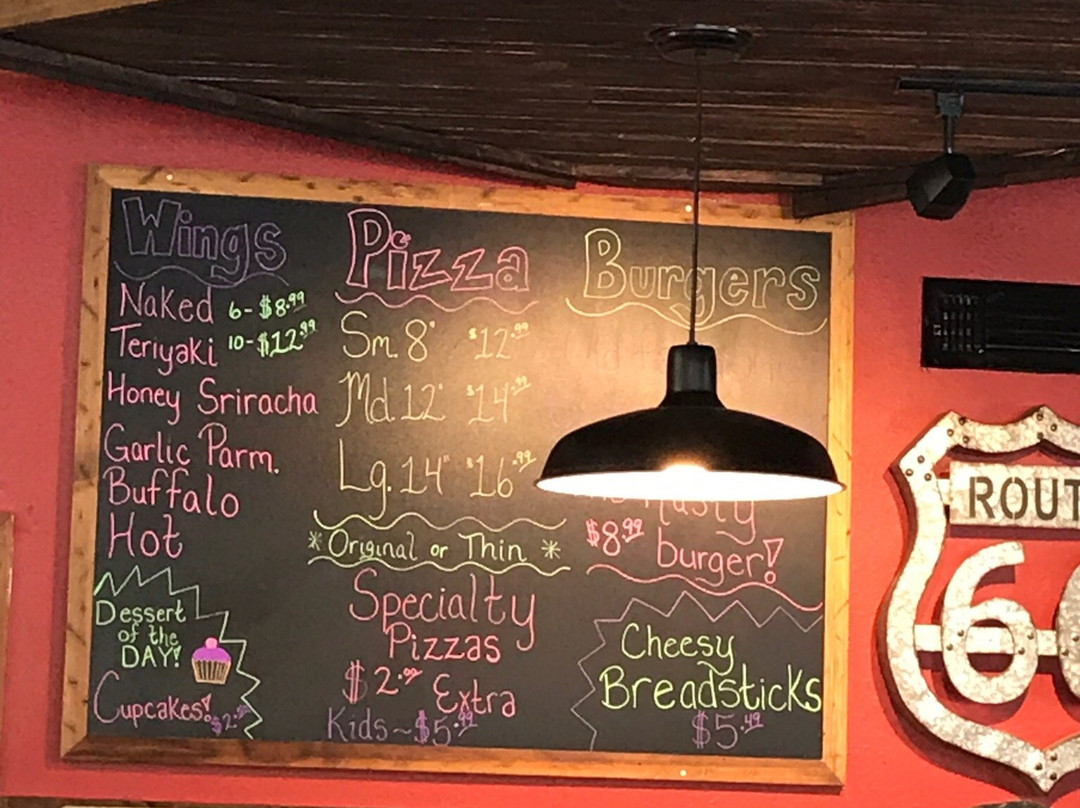 Wings
Naked 6-$8.99
Teriyaki 10-$12.99
Honey Sriracha
Garlic Parm.
Buffalo
Hot
Dessert
of the
DAY!
Cupcakes!
Pizza
Sm. 8" $12.99
Md. 12" $14.99
Lg. 14" $16.99
*Original or Thin*
Specialty
Pizzas
$2.00 Extra
Kids~$5.99
Burgers
nasty
$8.99 burger!
Cheesy
Breadsticks
$5.49
ROUT
6